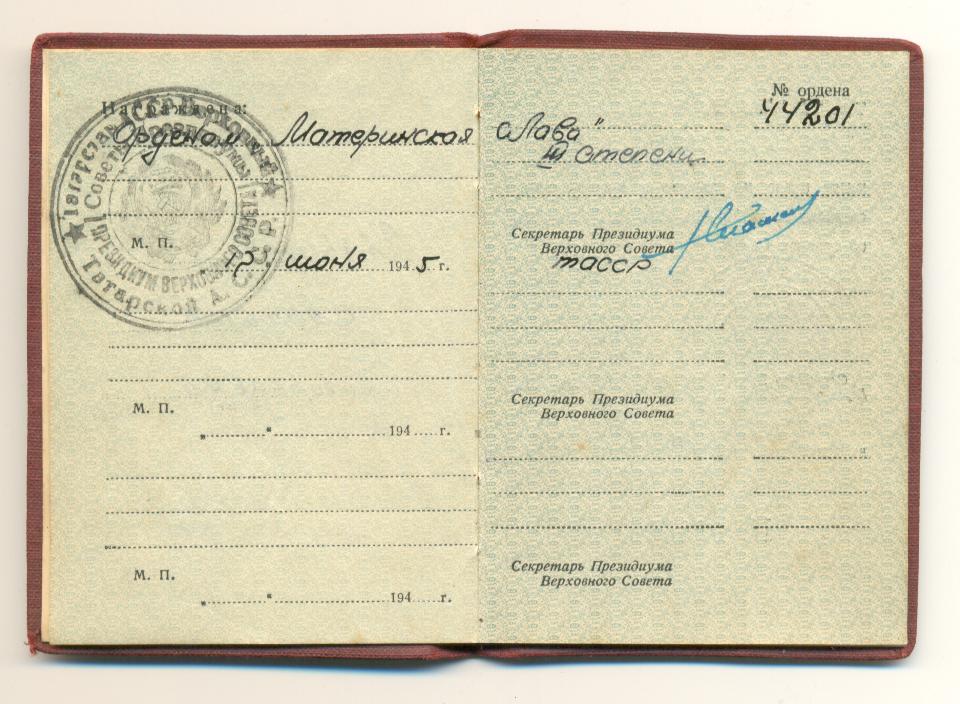 Награждена:
Орденом „Материнская слава"
III степени
№ ордена
44201
М. П.
13 июня 1945 г.
Секретарь Президиума
Верховного Совета
ТАССР
ПРЕЗИДИУМ ВЕРХОВНОГО СОВЕТА
Татарской А. С. С. Р.
М. П.
„ “ 194 г.
Секретарь Президиума
Верховного Совета
М. П.
„ “ 194 г.
Секретарь Президиума
Верховного Совета